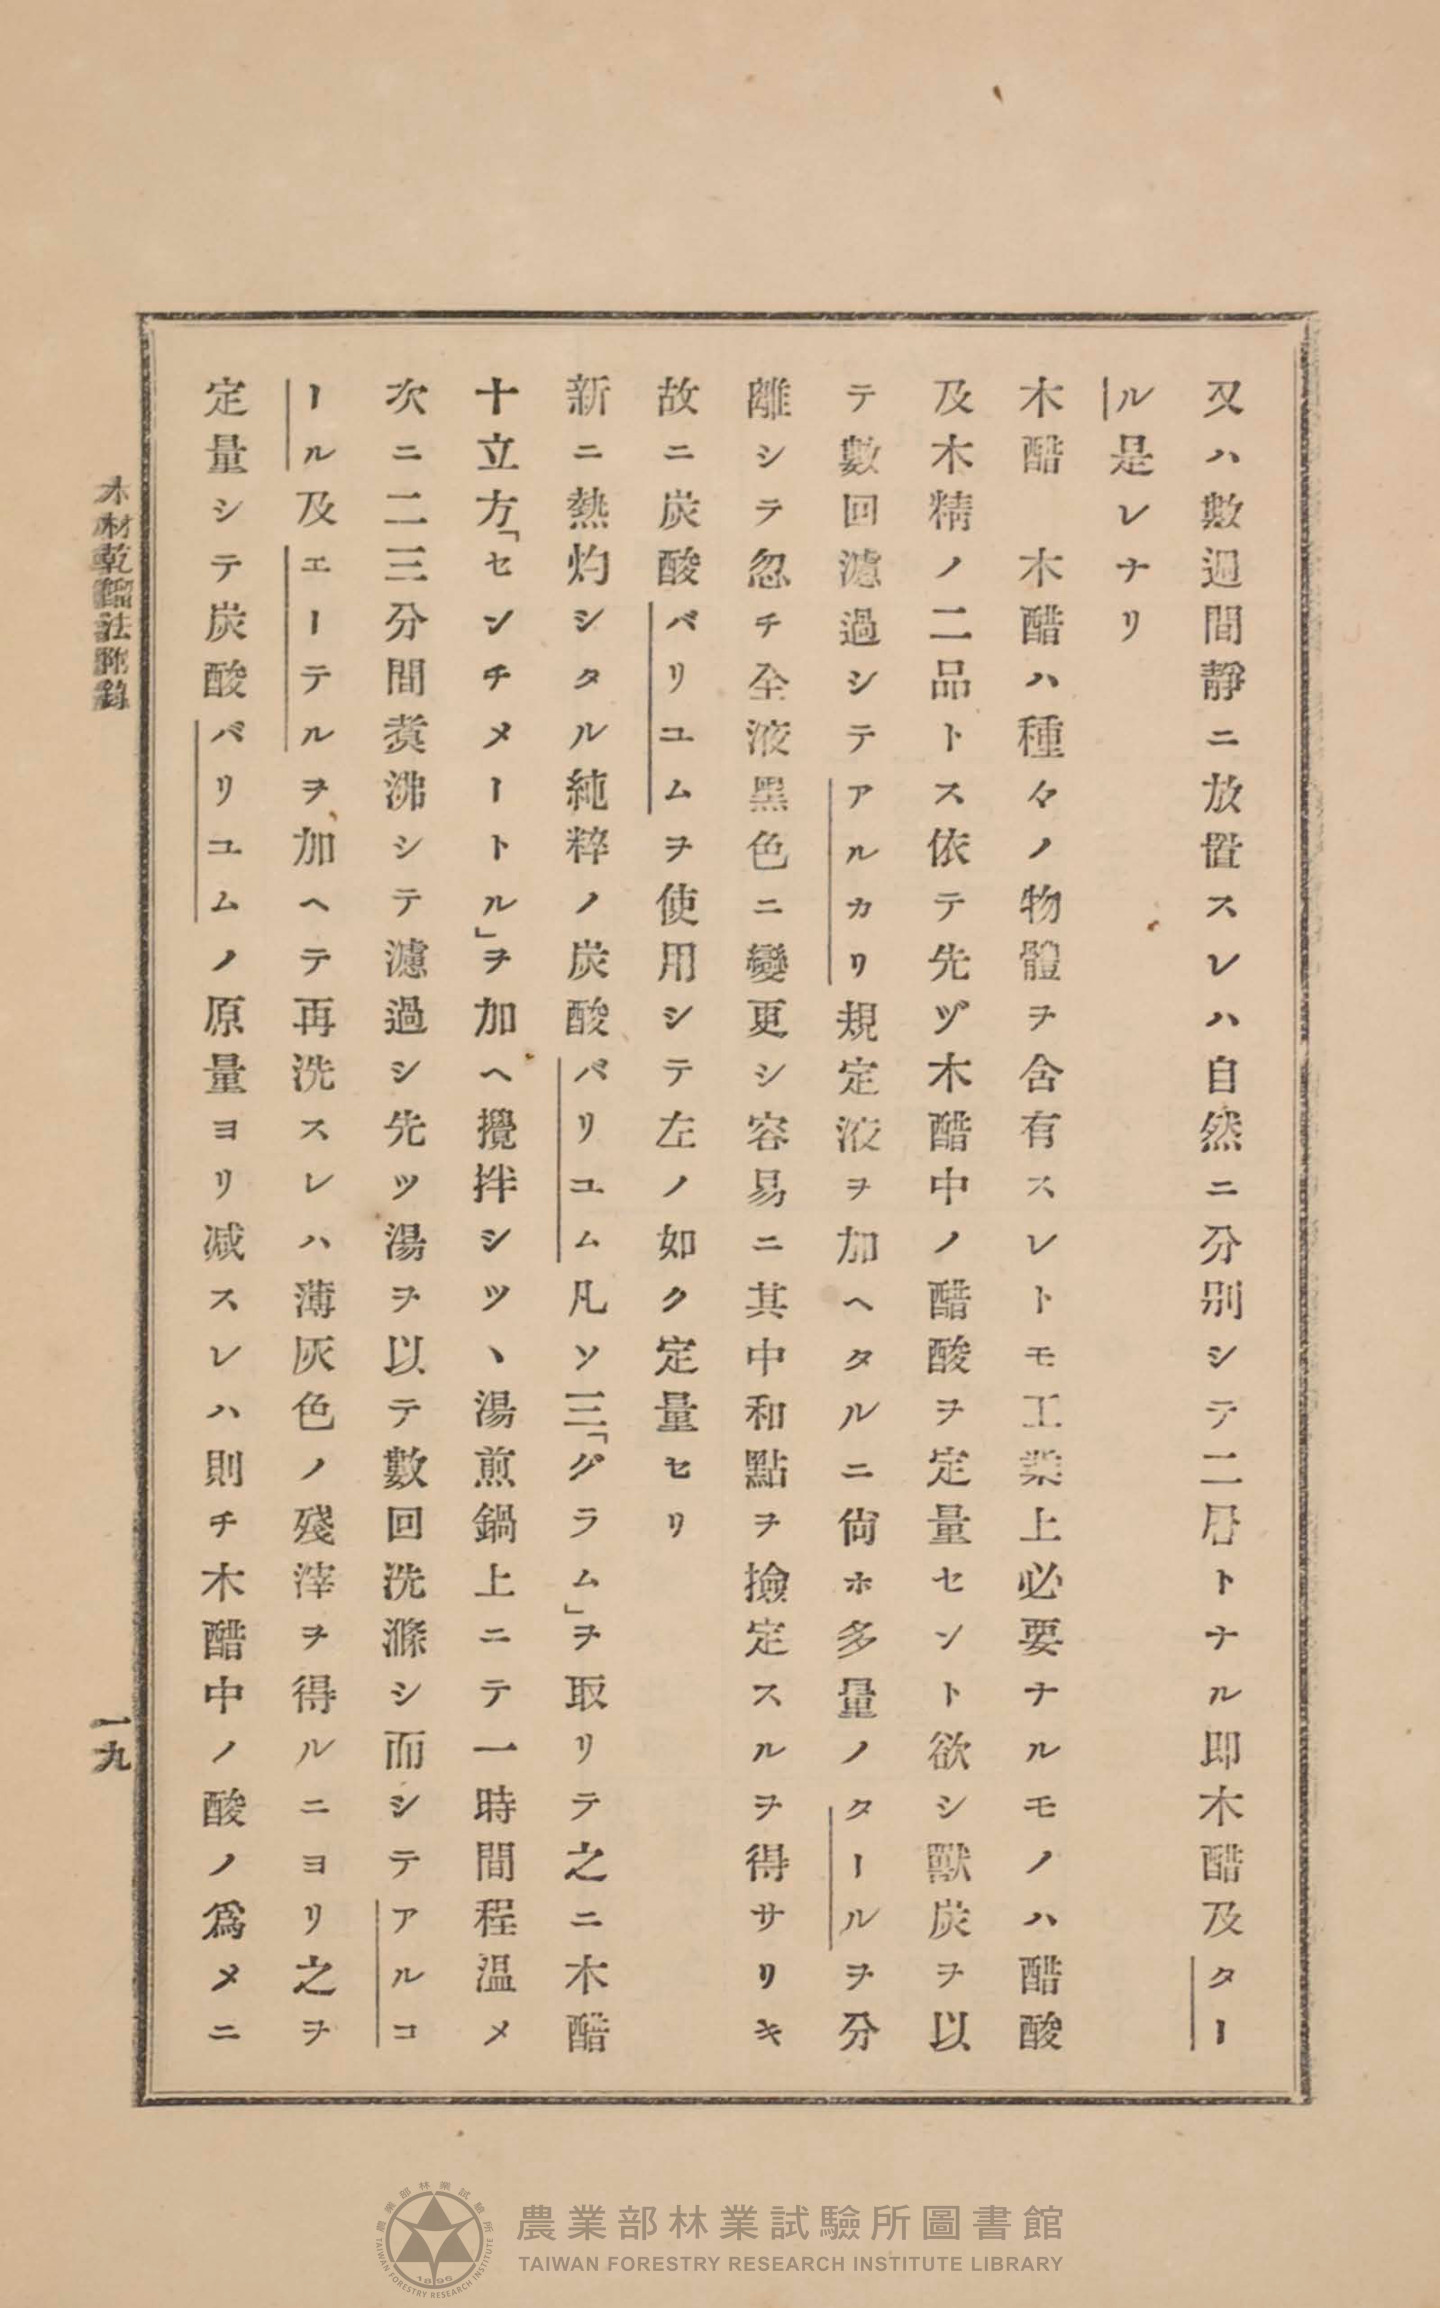 又ハ數週間靜ニ放置スレハ自然ニ分別シテ二層トナル即木醋及ター
ル是レナリ
木醋　木醋ハ種々ノ物體ヲ含有スレトモ工業上必要ナルモノハ醋酸
及木精ノ二品トス依テ先ヅ木醋中ノ醋酸ヲ定量セント欲シ獸炭ヲ以
テ數回濾過シテアルカリ規定液ヲ加ヘタルニ尙ホ多量ノタールヲ分
離シテ忽チ全液黑色ニ變更シ容易ニ其中和點ヲ撿定スルヲ得サリキ
故ニ炭酸バリユムヲ使用シテ左ノ如ク定量セリ
新ニ熱灼シタル純粹ノ炭酸バリユム凡ソ三「グラム」ヲ取リテ之ニ木醋
十立方「センチメートル」ヲ加ヘ攪拌シツヽ湯煎鍋上ニテ一時間程温メ
次ニ二三分間煑沸シテ濾過シ先ツ湯ヲ以テ數回洗滌シ而シテアルコ
ール及エーテルヲ加ヘテ再洗スレハ薄灰色ノ殘滓ヲ得ルニヨリ之ヲ
定量シテ炭酸バリユムノ原量ヨリ減スレハ則チ木醋中ノ酸ノ爲メニ
木材乾餾法附錄
一九
農業部林業試驗所圖書館
TAIWAN FORESTRY RESEARCH INSTITUTE LIBRARY
農業部林業試驗所
TAIWAN FORESTRY RESEARCH INSTITUTE
1896